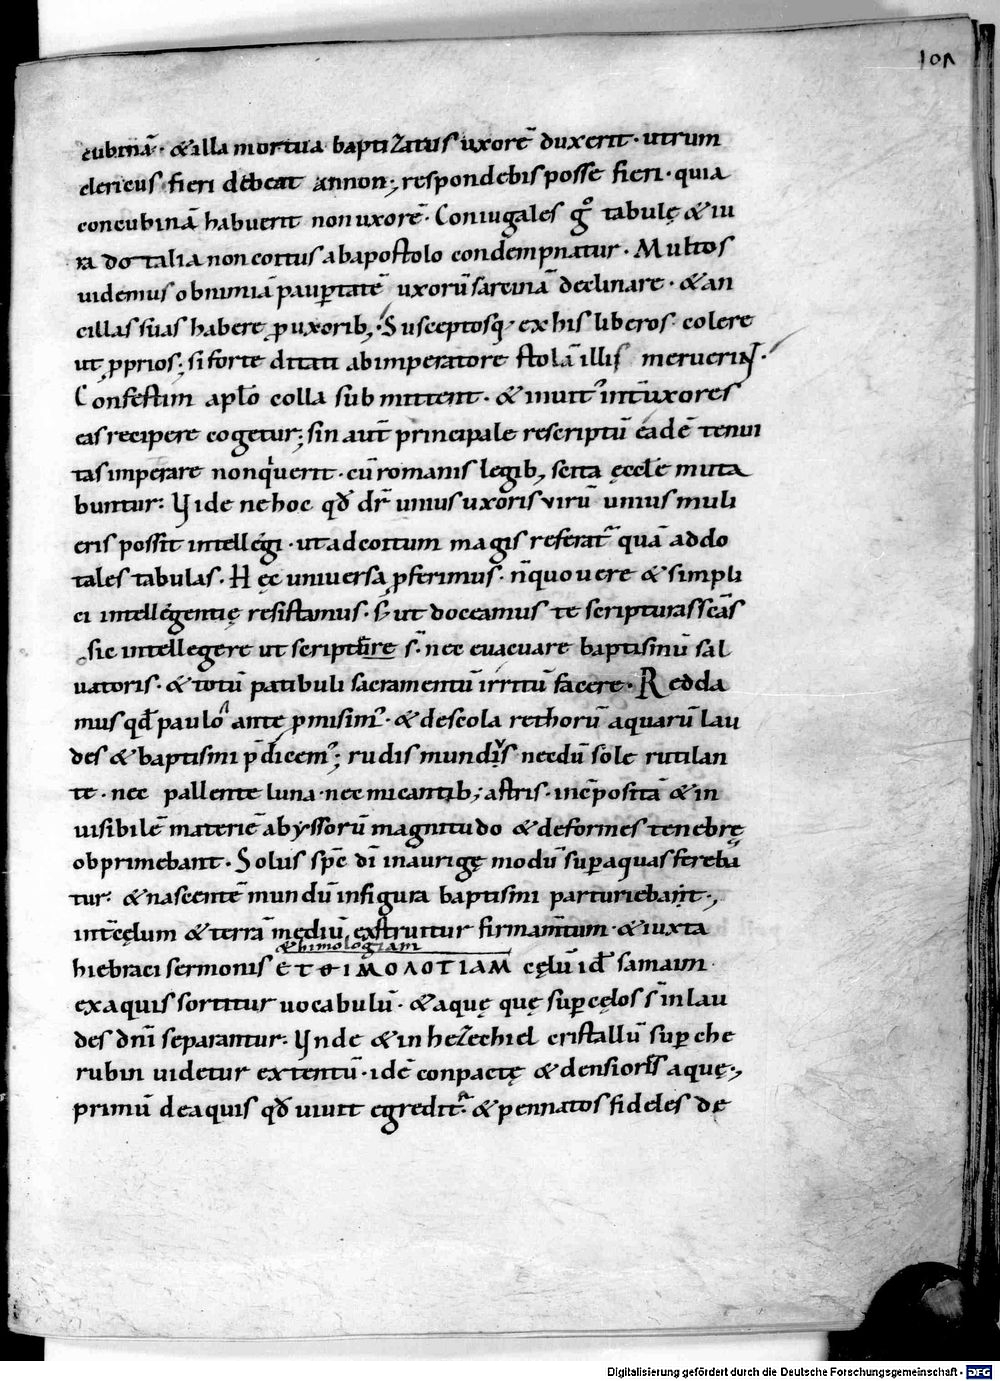 101
cubinā· & illa mortua baptizatus uxorē duxerit· utrum
clericus fieri debeat annon; respondebis posse fieri· quia
concubinā habuerit non uxorē· Coniugales gͦ tabulę & iu
ra dotalia non coitus ab apostolo condempnatur· Multos
uidemus ob nimiā paupertatē uxorū sarcinā declinare· & an
cillas suas habere ꝓ uxorib;· Susceptosq; ex his liberos colere
ut ꝓprios; si forte ditati ab imperatore stolā illis meruerint·
Confestim aplo colla submittent· & inuit' int̄ uxores
eas recipere cogetur; sin aut̄ principale rescriptū eadē tenui
tas imperare non quierit· cū romanis legib; scita ęccle muta
buntur: Vide ne hoc qd̄ dr̄ unius uxoris virū unius muli
eris possit intellegi· ut ad coitum magis referat' quā ad do
tales tabulas· Hęc uniuersa ꝓferimus· n̄ quo uere & simpli
ci intellegentię resistamus· s; ut doceamus te scripturas scās
sic intellegere ut scriptūre s̄· nec euacuare baptismū sal
uatoris· & totū patibuli sacramentū irritū facere· Redda
mus qd̄ paulo ante ꝓmisim'· & de scola rethorū aquarū lau
des & baptismi p̄dicem'; rudis mundus necdū sole rutilan
te· nec pallente luna· nec micantib; astris· incōpositā & in
uisibilē materiē abyssorū magnitudo & deformes tenebrę
obprimebant· Solus sp̄c dī in aurigę modū super aquas fereba
tur: & nascentē mundū in figura baptismi parturiebant·,
int̄ cęlum & terrā mediū exstruitur firmamtum· & iuxta
&himologiam
hiebraci sermonis ЄΤΘΙΜΟΛΟΤΙΑΜ cęlū id̄ samaim·
ex aquis sortitur uocabulū· & aquę quę super cęlos s̄ in lau
des dnī separantur: Vnde & in hezechiel cristallū super che
rubin uidetur extentū· idē conpactę & densiores aquę·,
primū de aquis qd̄ uiuit egredit'· & pennatos fideles de
Digitalisierung gefördert durch die Deutsche Forschungsgemeinschaft - DFG